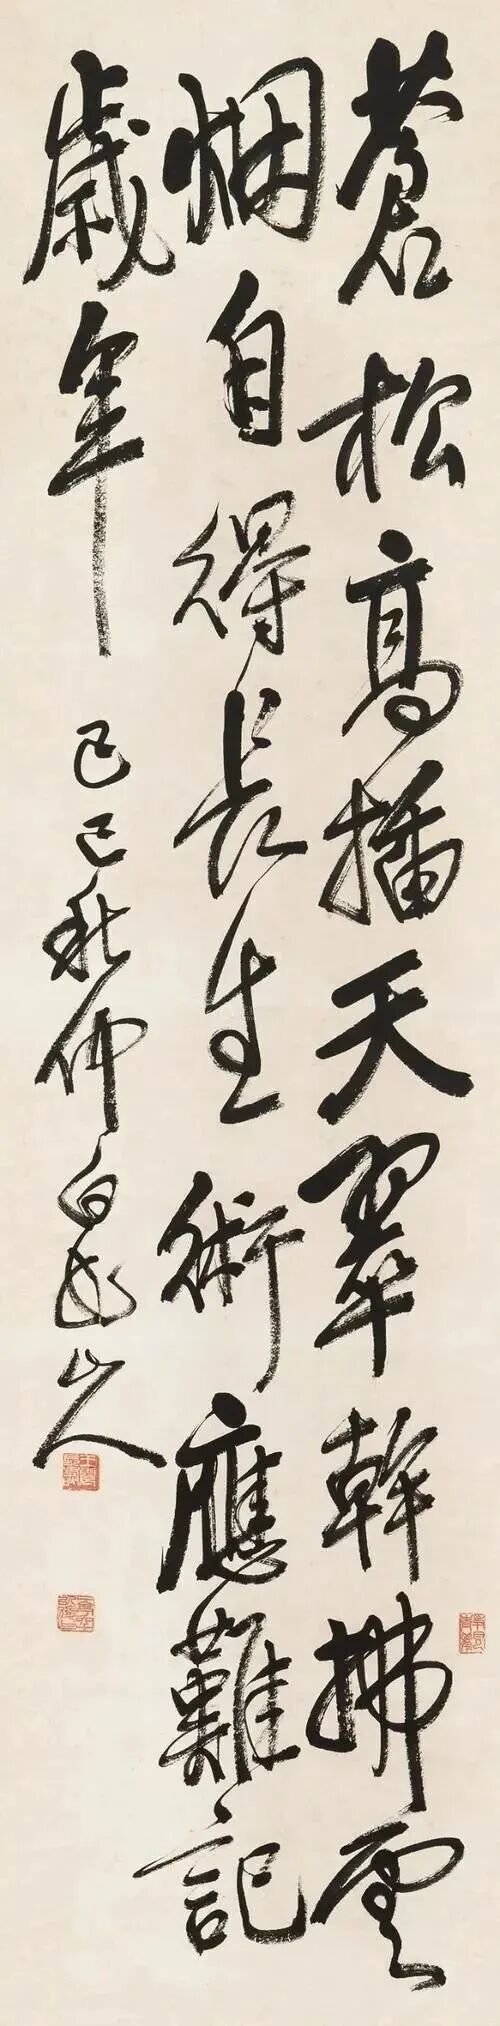 蒼松高插天翠幹拂雲
烟自得長生術應難記
歲年 己巳秋佛 白龍山人